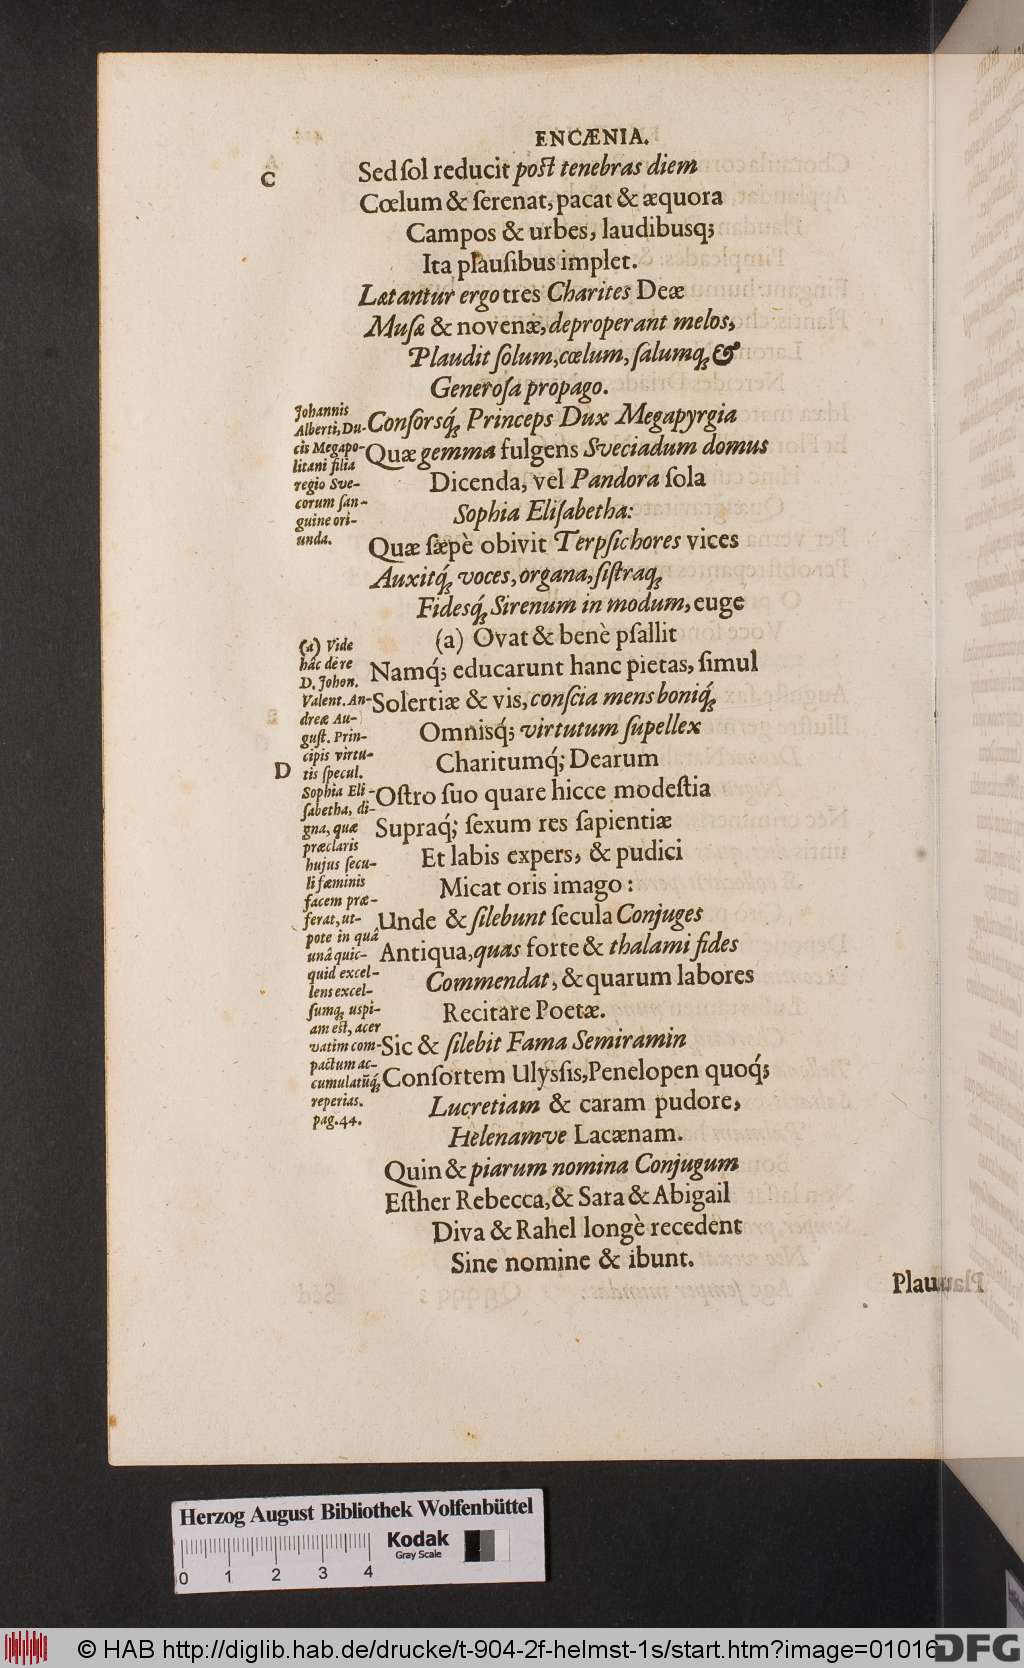 ENCÆNIA.
C
Sed ſol reducit poſt tenebras diem
Cœlum & ſerenat, pacat & æquora
Campos & urbes, laudibusq́;
Ita plauſibus implet.
Lætantur ergo tres Charites Deæ
Muſæ & novenæ, deproperant melos,
Plaudit ſolum, cœlum, ſalumq́; &
Generoſa propago.
Conſorsq́; Princeps Dux Megapyrgia
Quæ gemma fulgens Sveciadum domus
Dicenda, vel Pandora ſola
Sophia Eliſabetha:
Quæ ſæpè obivit Terpſichores vices
Auxitq́; voces, organa, ſiſtraq́;
Fidesq́; Sirenum in modum, euge
(a) Ovat & benè pſallit
Namq́; educarunt hanc pietas, ſimul
Solertiæ & vis, conſcia mens boniq́;
Omnisq́; virtutum ſupellex
Charitumq́; Dearum
D
Oſtro ſuo quare hicce modeſtia
Supraq́; ſexum res ſapientiæ
Et labis expers, & pudici
Micat oris imago:
Unde & ſilebunt ſecula Conjuges
Antiqua, quas forte & thalami fides
Commendat, & quarum labores
Recitare Poetæ.
Sic & ſilebit Fama Semiramin
Conſortem Ulyſsis, Penelopen quoq́;
Lucretiam & caram pudore,
Helenamve Lacænam.
Quin & piarum nomina Conjugum
Eſther Rebecca, & Sara & Abigail
Diva & Rahel longè recedent
Sine nomine & ibunt.
Plau
Johannis
Alberti, Du-
cis Megapo-
litani filia
regio Sve-
corum ſan-
guine ori-
unda.
(a) Vide
hâc de re
D. Johon.
Valent. An-
dreæ Au-
guſt. Prin-
cipis virtu-
tis ſpecul.
Sophia Eli-
ſabetha, di-
gna, quæ
præclaris
hujus ſecu-
li fæminis
facem præ-
ferat, ut-
pote in quâ
unâ quic-
quid excel-
lens excel-
ſumq́; uſpi-
am eſt, acer
vatim com-
pactum ac-
cumulatūq́;
reperias.
pag. 44.
Herzog August Bibliothek Wolfenbüttel
Kodak
Gray Scale
0 1 2 3 4
© HAB http://diglib.hab.de/drucke/t-904-2f-helmst-1s/start.htm?image=01016
DFG